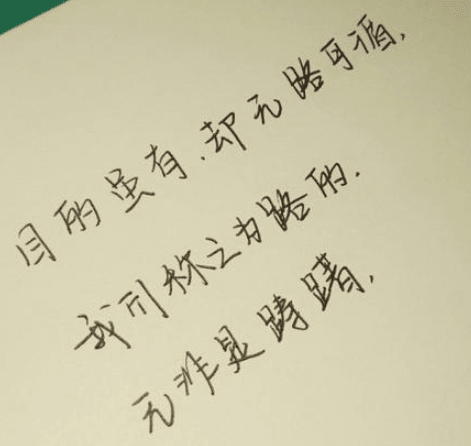 目的虽有.却无路可循,
我所称之为路的.
无非是踌躇,